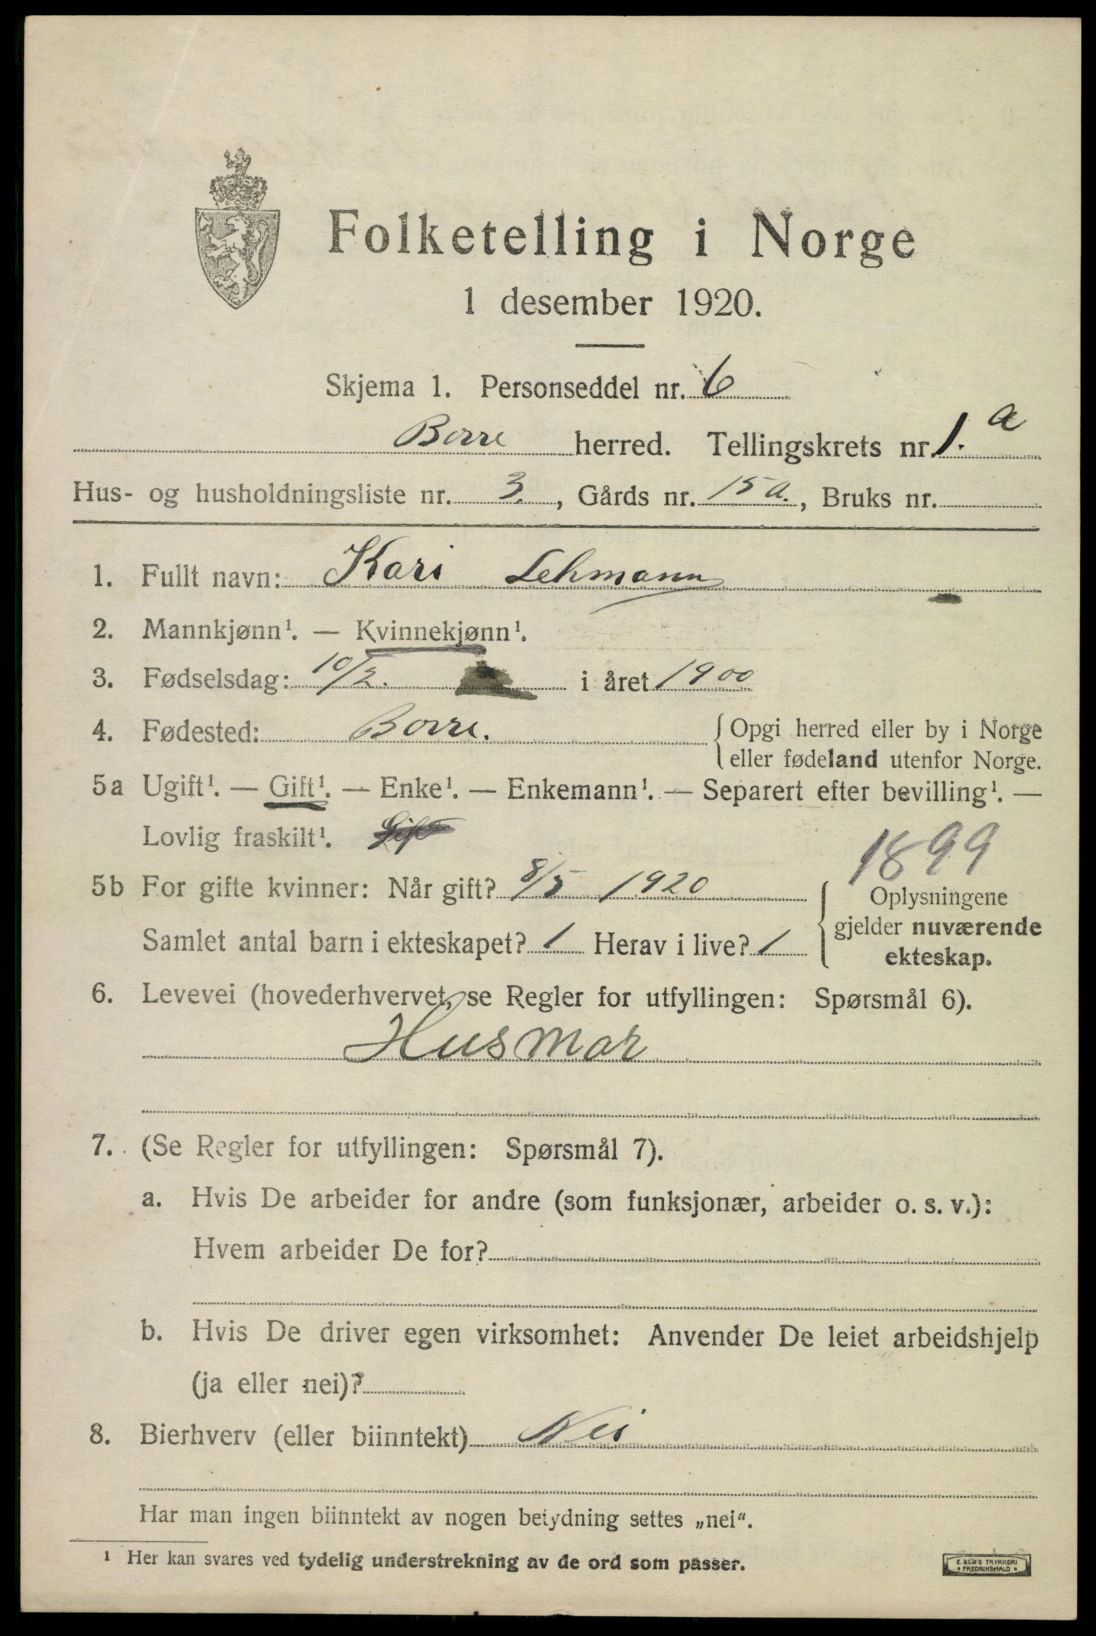 Folketelling i Norge
1 desember 1920.
Skjema 1. Personseddel nr. 6
Borre herred. Tellingskrets nr. 1. a
Hus- og husholdningsliste nr. 3., Gårds nr. 15 a., Bruks nr.
1. Fullt navn: Kari Lehmann
2. Mannkjønn¹. — Kvinnekjønn¹.
3. Fødselsdag: 10/2. i året 1900
4. Fødested: Borre. { Opgi herred eller by i Norge
eller fødeland utenfor Norge.
5a Ugift¹. — Gift¹. — Enke¹. — Enkemann¹. — Separert efter bevilling¹. —
Lovlig fraskilt¹. Gift
1899
5b For gifte kvinner: Når gift? 8/5 1920
Samlet antal barn i ekteskapet? 1 Herav i live? 1
{ Oplysningene
gjelder nuværende
ekteskap.
6. Levevei (hovederhvervet, se Regler for utfyllingen: Spørsmål 6).
Husmor
7. (Se Regler for utfyllingen: Spørsmål 7).
a. Hvis De arbeider for andre (som funksjonær, arbeider o. s. v.):
Hvem arbeider De for?
b. Hvis De driver egen virksomhet: Anvender De leiet arbeidshjelp
(ja eller nei)?
8. Bierhverv (eller biinntekt) Nei
Har man ingen biinntekt av nogen betydning settes „nei“.
¹ Her kan svares ved tydelig understrekning av de ord som passer.
E. SEM'S TRYKKERI
• FREDRIKSHALD •